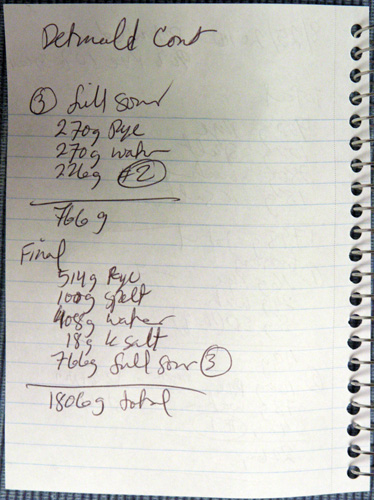 Detmold Cont
③ full sour
270g Rye
270g water
226g #2
766g
Final
514g Rye
100g spelt
408g water
18g k salt
766g full sour ③
1806g total